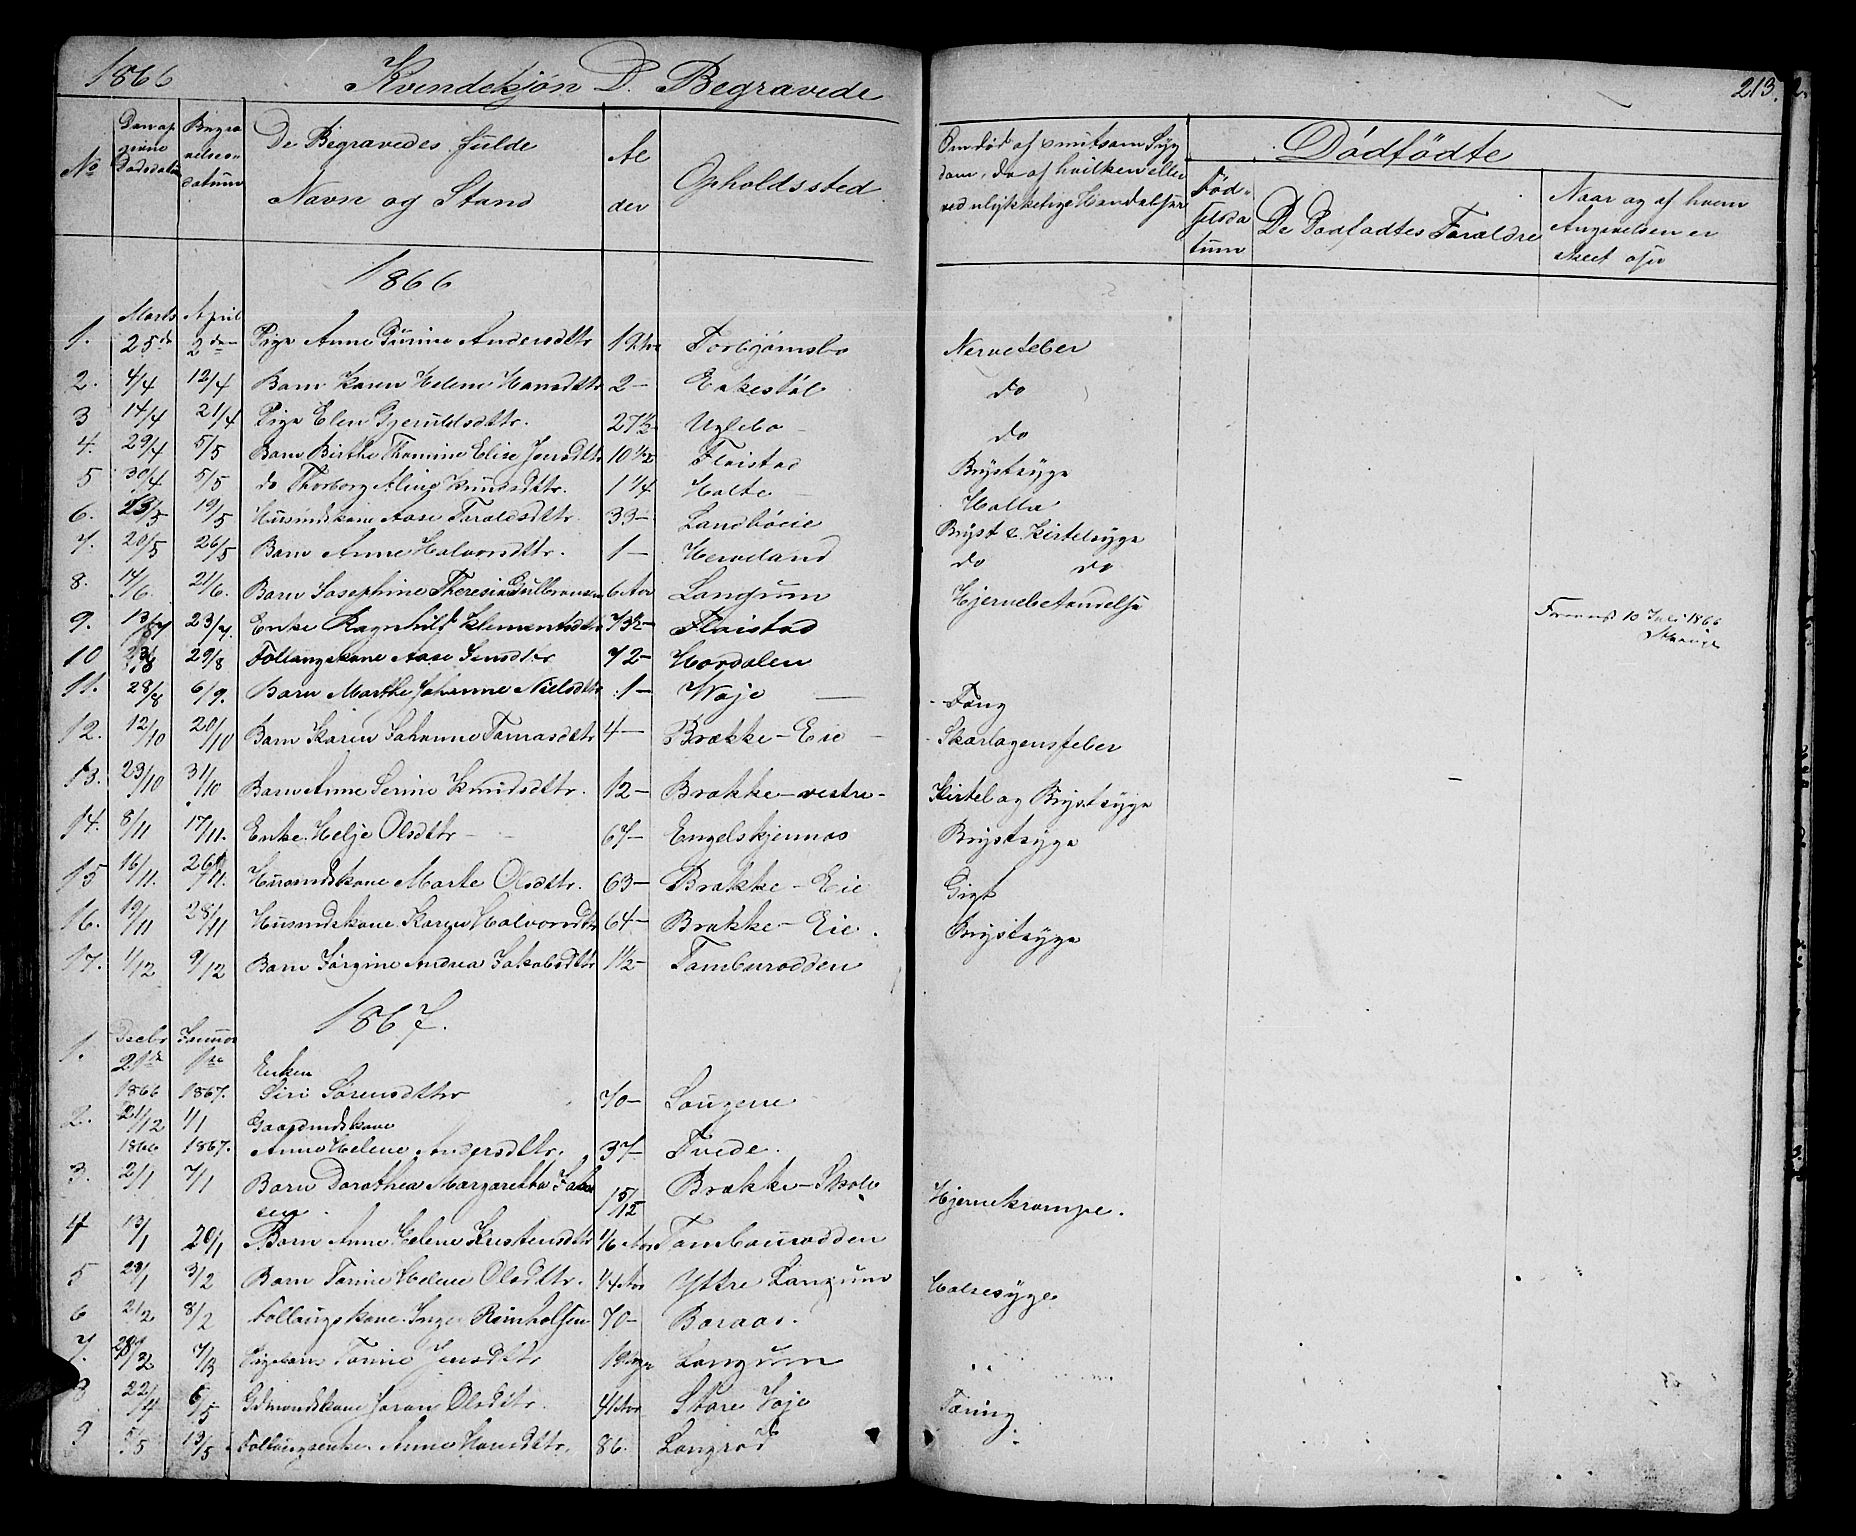 1866 Kvindekjøn D. Begravede
213.
No
Den op
givne
Dødsdatum
Begra
velses
datum
De Begravedes fulde
Navn og Stand
Al
der
Opholdssted
Om død af smitsom Syg
dom, da af hvilken eller
ved ulykkelige Hændelser
Dødfødte
Fød-
selsda
tum
De Dødfødtes Forældre
Naar og af hvem
Angivelsen er
skeet osv
1866
Marts April
1. 25de 2den Pige Anne Andersdttr 19 Torbjørnsbo Nervefeber
2. 4/4 12/4 Barn Karen Helene Hansdttr 2- Eikestøl do
3 14/4 21/4 Pige Elen Gjeruldsdttr. 27 1/2 Uglebo do
4. 29/4 5/5 Barn Birthe Thomine Elise Jensdttr 10 1/2 Flaistad Brystsyge
5 30/4 5/5 do Thorborg Aline Knudsdttr. 1 1/4 Holte
6. 13/5 19/5 Husmdskone Aase Taraldsdttr. 33- Landbøeie Bryst & Kirtelsyge
7. 20/5 26/5 Barn Anne Halvorsdttr. 1- Herveland do do
8. 14/6. 21/6. Barn Josephine Theresia Gulbransen 6 Langum Hjernebetændelse
9. 13/7 23/7. Enke Ragnhild Klementsdttr 73 1/2- Flaistad 10 Juli 1866
10 23/8 29/8 Follaugskone Aase Jensdttr 72- Hordalen
11. 28/8 6/9. Barn Marthe Johanne Nielsdttr 1- Woje
12. 12/10 20/10 Barn Karen Johanne Tomasdttr 4- Brække-Eie Skarlagensfeber
13. 23/10 31/10 Barn Anne Serine Knudsdttr. 12- Brække-vestre- Kirtel og Brystsyge
14. 8/11 17/11. Enke Helje Olsdttr 67- Engelskjennas Brystsyge
15 16/11. 26/11. Husmdskone Marte Olsdttr. 63- Brække-Eie Gigt
16. 19/11 28/11 Husmdskone Karen Halvorsdttr 64- Brække-Eie. Brystsyge
17. 1/12 9/12 Barn Jørgine Andrea Jakobsdttr 1 1/2- Tamburodden
1867.
1. Decbr Januar
21de 1ste Enken
1866 1867. Siri Sørensdttr 70- Longene
2. 21/12 1/1 Gaardmdskone
1866 1867. Anne Helene Andersdttr. 37- Tvede.
3. 2/1 7/1 Barn Dorothea Margaretha Jakob
sen. 15/12 Brække-Skole Hjernekrampe.
4 13/1 20/1 Barn Anne Helene Kristensdttr 1/6 Aar Tambourodden
5 28/1 3/2 Barn Tomine Helene Olsdttr. 1/4 Aar Yttre Langum Halsesyge
6 2/2 8/2 Follaugskone Inger Reinholsen 70- Boraas.
7. 28/2 7/3 Pigebarn Tomine Jensdttr Langum
8 22/4 6/5 Gdmandskone Joran Olsdttr. 41 Aar Store Voje Tæring
9 5/5 13/5 Follaugsenke Anne Hansdttr. 86. Langrød